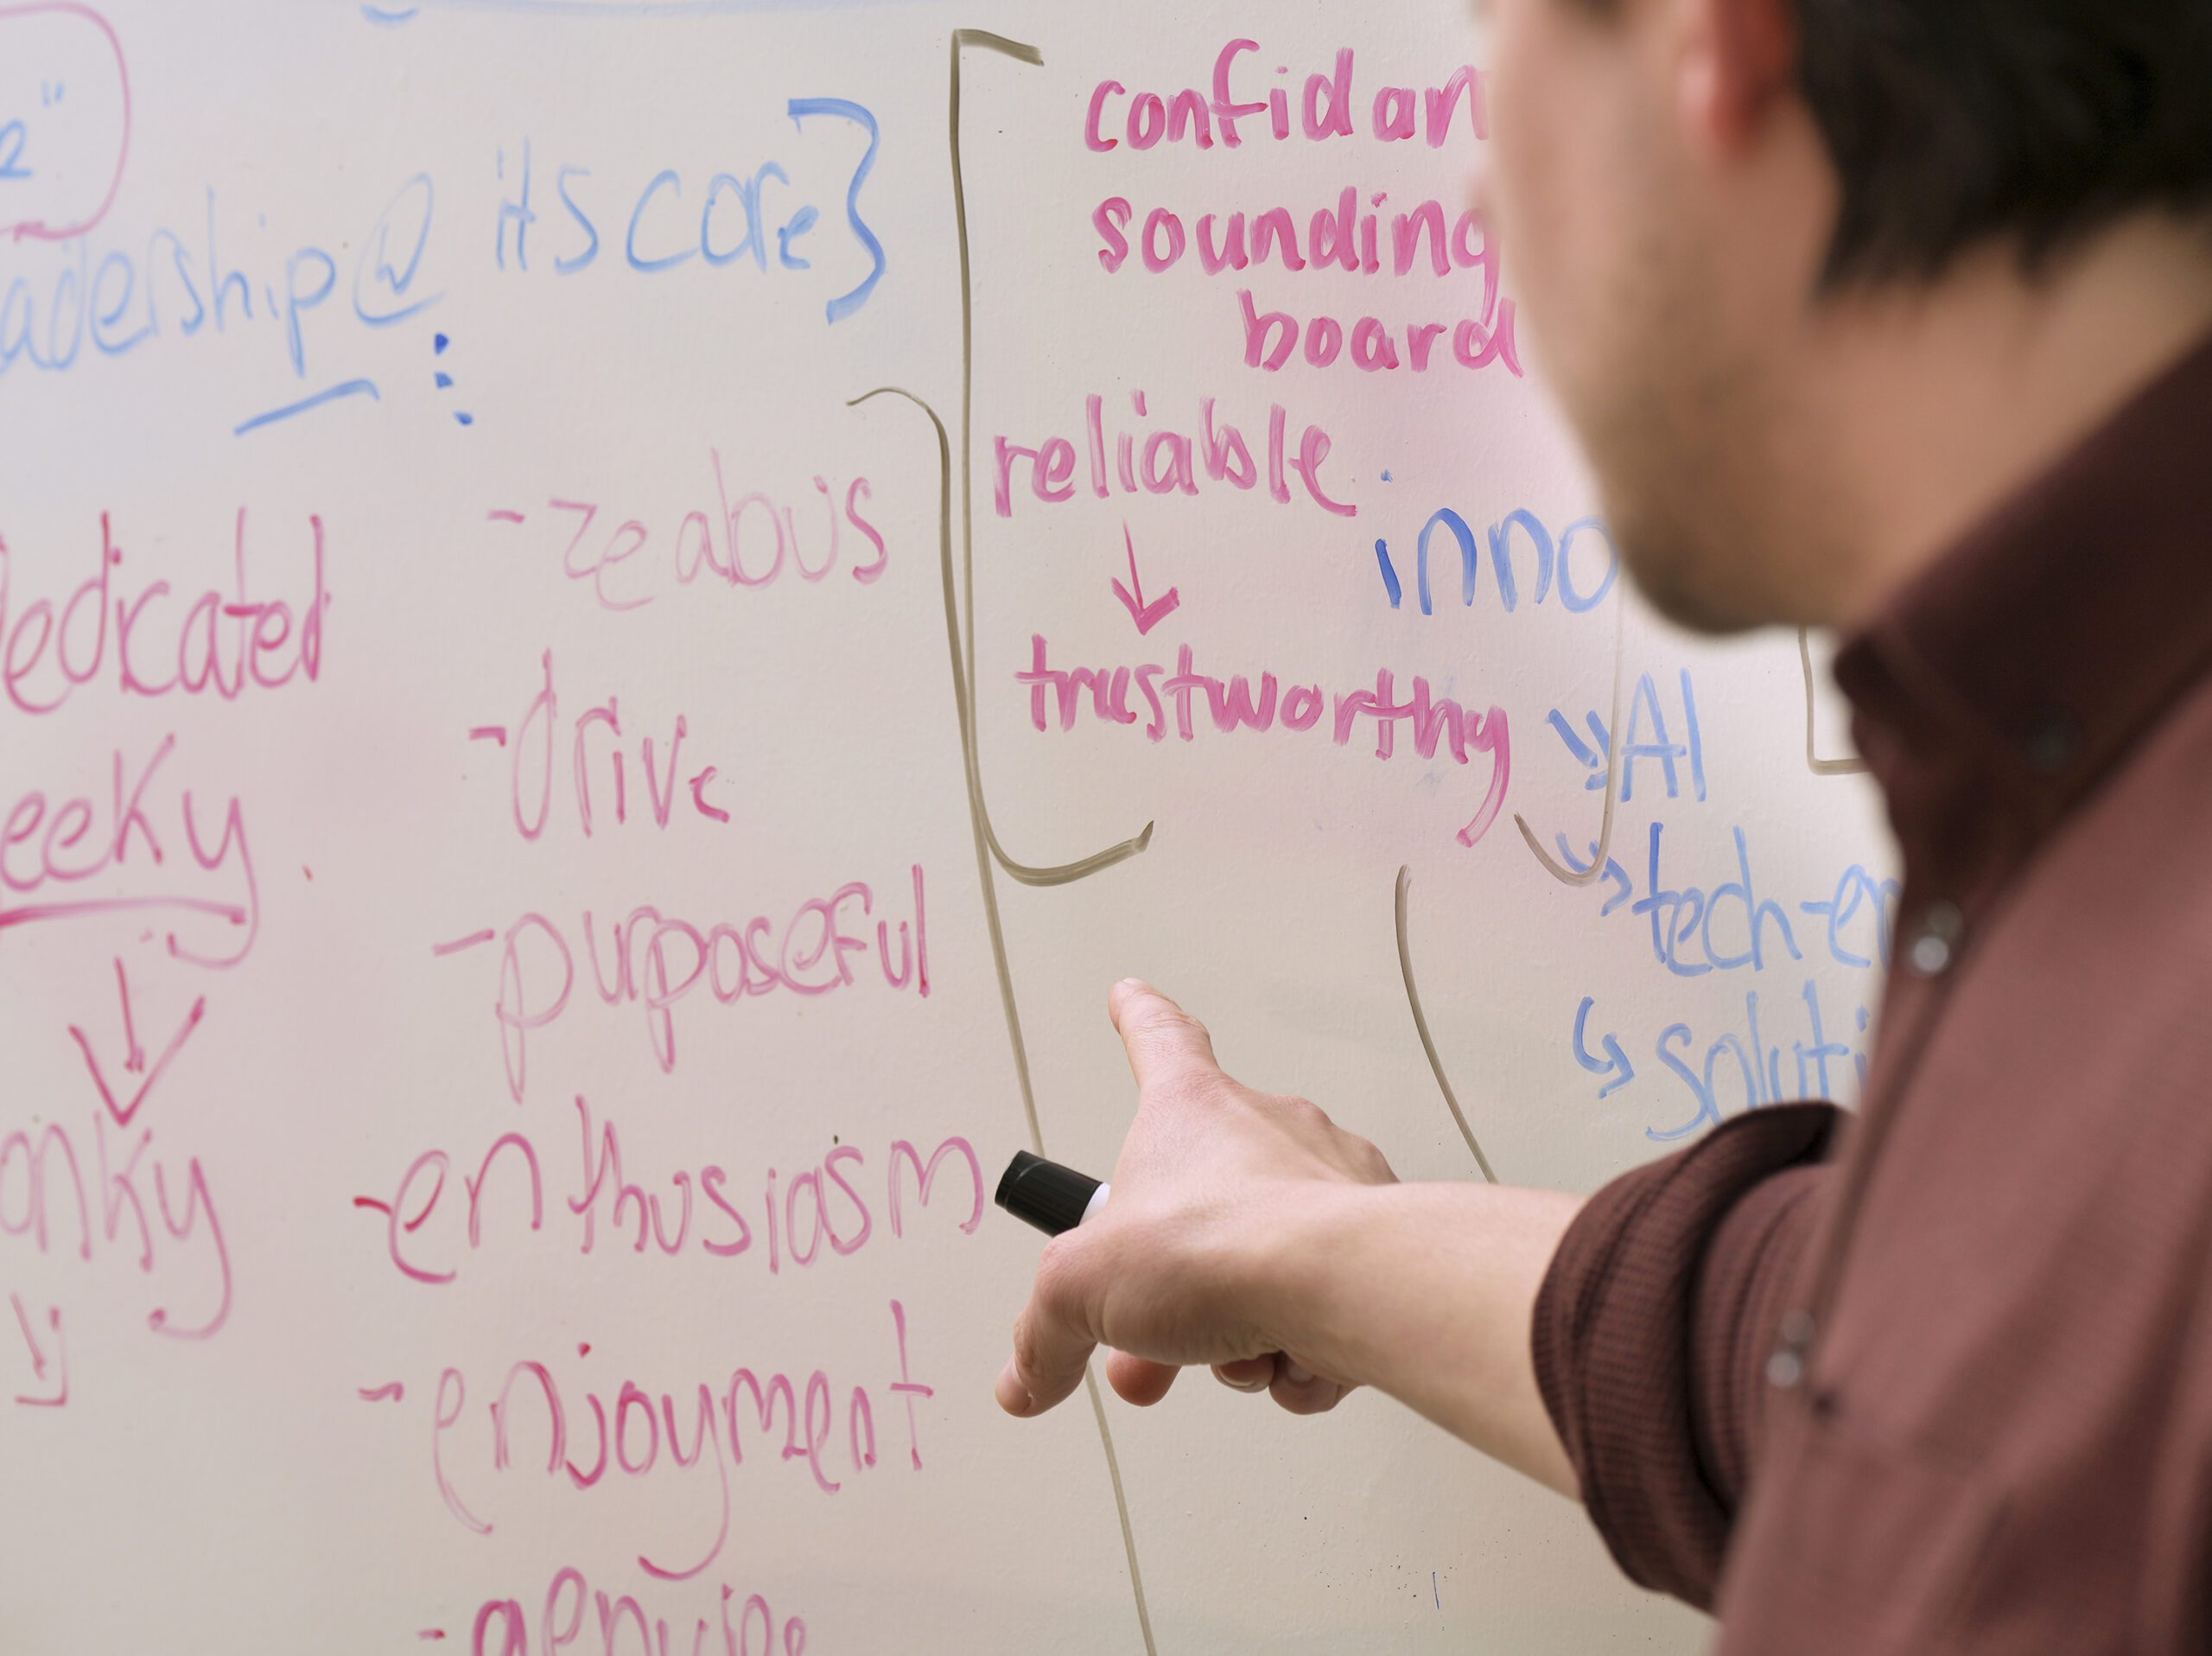 adership @ its core}
- zealous
edicated
- drive
eeky
- purposeful
onky
- enthusiasm
- enjoyment
- genuine
confidan
sounding
board
reliable
trustworthy
inno
AI
tech-en
soluti